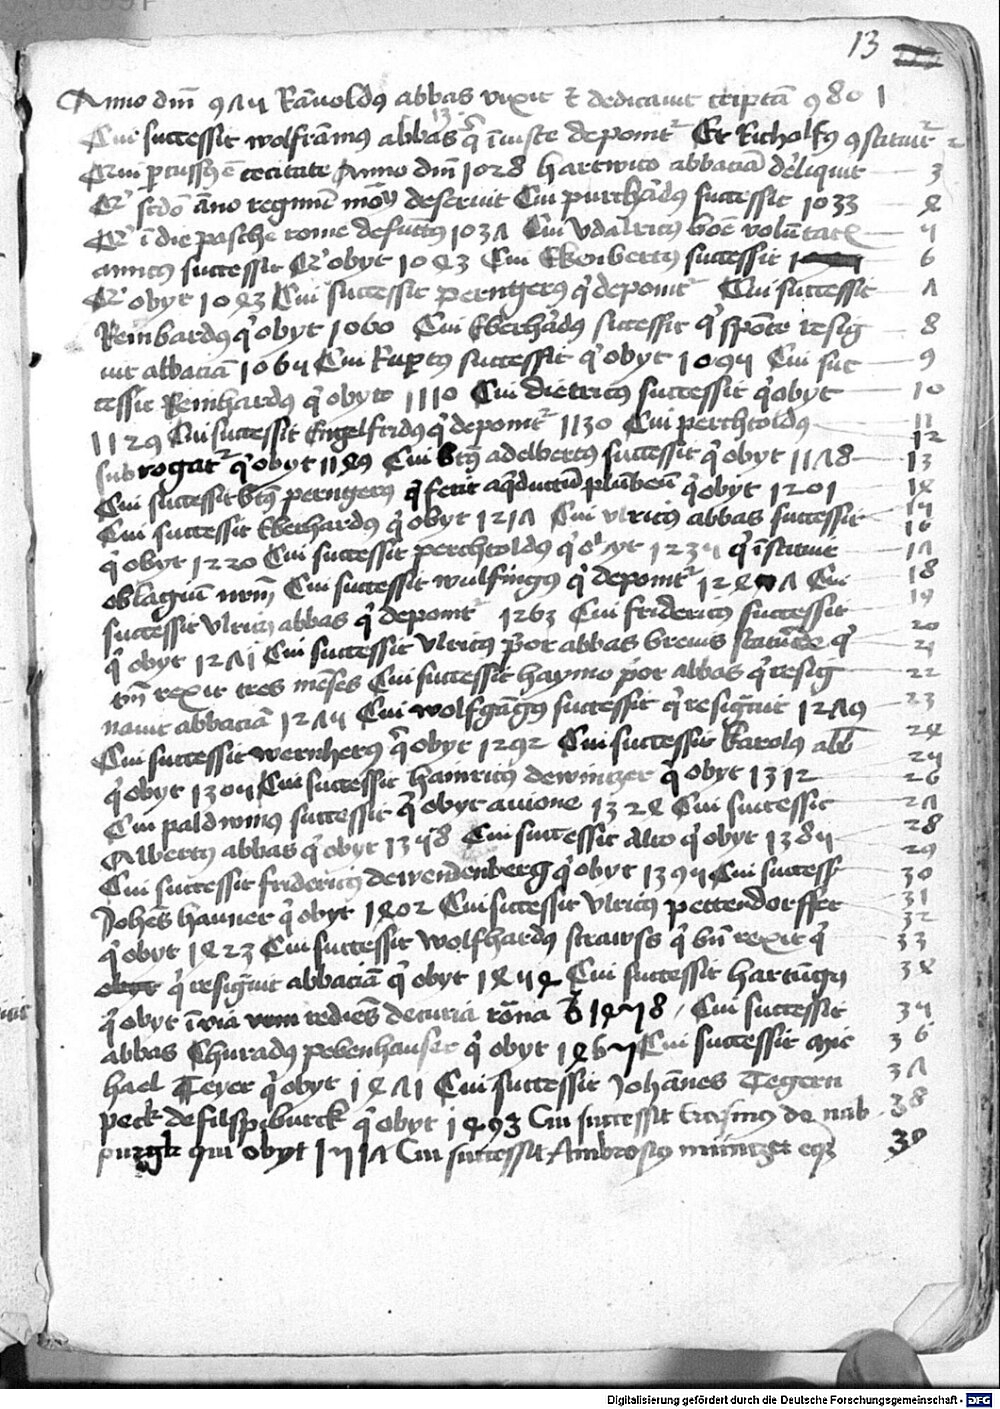 13
Anno dm̄ 975 Rāvoldꝯ abbas vixit et dedicavit criptā 980 1
Cui successit wolframus abbas q̄ iniuste deponitr Et Richolfꝯ ꝯstituitr 2
Anno dm̄ 1028 hartwico abbaciā deliquit 3
deseruit Cui purkhardꝯ successit 1033 4
in die pasche rome defunctꝯ 1037 Cui Vdalricꝯ 5
amicꝯ successit Et obyt 1043 Cui Ekenbertꝯ successit 6
Et obyt 1043 Cui successit perngerꝯ q̇ deponitr Cui successit 7
Reinhardꝯ q̇ obyt 1060 Cui Eberhardꝯ successit q̇ spōte resig 8
nit abbaciā 1065 Cui Rupertꝯ successit q̇ obyt 1095 Cui suc 9
cessit Reinhardꝯ q̇ obyt 1110 Cui dietricꝯ successit q̇ obyt 10
1129 Cui successit Engelfridꝯ q̇ deponitr 1130 Cui perchtoldꝯ 11
subrogatr q̇ obyt 1149 Cui btꝯ adelbertꝯ successit q̇ obyt 1178 12
Cui successit btꝯ perngerꝯ q̇ fecit aq̄ductū plūbeū q̇ obyt 1201 13
Cui successit Eberhardꝯ q̇ obyt 1217 Cui vlricꝯ abbas successit 14
q̇ obyt 1220 Cui successit perchtoldꝯ q̇ obyt 1235 q̇ īstituit 15
oblagiū nrm̄ Cui successit wulfingꝯ q̇ deponitr Cui 16
successit Vlricꝯ abbas q̇ deponitr 1263 Cui fridericꝯ successit 17
q̇ obyt 1271 Cui successit Vlricꝯ p̄or abbas brevis stature q̇ 18
tm̄ rexit tres mēses Cui successit haymo p̄or abbas q̇ resig 19
navit abbaciā 1275 Cui wolfgangꝯ successit q̇ resignavit 1279 20
Cui successit wernherꝯ q̇ obyt 1292 Cui successit karolꝯ abb 21
q̇ obyt 1305 Cui successit hainricꝯ de wintzer q̇ obyt 1312 22
Cui paldwinꝯ successit q̇ obyt avione 1324 Cui successit 23
Albertꝯ abbas q̇ obyt 1358 Cui successit Alto q̇ obyt 1385 24
Cui successit fridericꝯ de wendenberg q̇ obyt 1395 Cui success 25
Johēs hauner q̇ obyt 1402 Cui successit Vlricꝯ pettendorffer 26
q̇ obyt 1423 Cui successit wolfhardꝯ strawss q̇ bn̄ rexit q̇ 27
obyt q̇ resignavit abbaciā q̇ obyt 1454 Cui successit hartūgꝯ 28
q̇ obyt ī via rediēs de curia romana 1458 Cui successit 29
abbas Chunradꝯ pebenhauser q̇ obyt 1465 Cui successit mic 30
hael Teyer q̇ obyt 1471 Cui successit Johannes Tegern 31
peck de filspiburck q̇ obyt 1493 Cui successit Erasmus de nab 32
purgk qui obyt 1517 Cui successit Ambrosius műntzer eqz 33
34
35
36
37
38
39
Digitalisierung gefördert durch die Deutsche Forschungsgemeinschaft - DFG